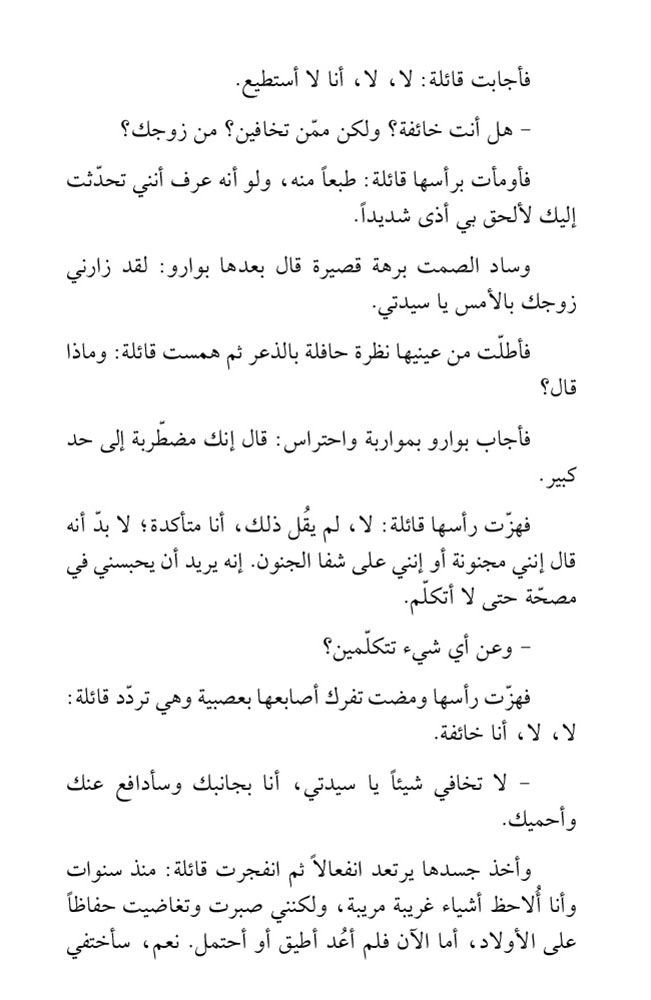 فأجابت قائلة: لا، لا، أنا لا أستطيع.
– هل أنت خائفة؟ ولكن ممّن تخافين؟ من زوجك؟
فأومأت برأسها قائلة: طبعاً منه، ولو أنه عرف أنني تحدّثت
إليك لألحق بي أذى شديداً.
وساد الصمت برهة قصيرة قال بعدها بوارو: لقد زارني
زوجك بالأمس يا سيدتي.
فأطلّت من عينيها نظرة حافلة بالذعر ثم همست قائلة: وماذا
قال؟
فأجاب بوارو بمواربة واحتراس: قال إنك مضطّربة إلى حد
كبير.
فهزّت رأسها قائلة: لا، لم يقُل ذلك، أنا متأكدة؛ لا بدّ أنه
قال إنني مجنونة أو إنني على شفا الجنون. إنه يريد أن يحبسني في
مصحّة حتى لا أتكلّم.
– وعن أي شيء تتكلّمين؟
فهزّت رأسها ومضت تفرك أصابعها بعصبية وهي تردّد قائلة:
لا، لا، أنا خائفة.
– لا تخافي شيئاً يا سيدتي، أنا بجانبك وسأدافع عنك
وأحميك.
وأخذ جسدها يرتعد انفعالاً ثم انفجرت قائلة: منذ سنوات
وأنا أُلاحظ أشياء غريبة مريبة، ولكنني صبرت وتغاضيت حفاظاً
على الأولاد، أما الآن فلم أعُد أطيق أو أحتمل. نعم، سأختفي